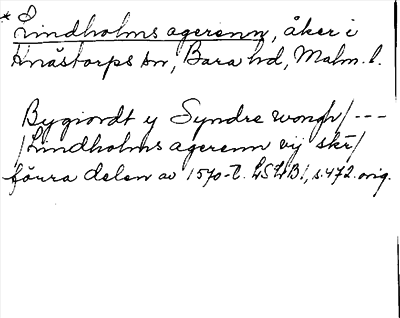 * Lindholms agerenn, åker i
Knästorps sn, Bara hd, Malm. l.
Bygiordt y Syndre wongh/ ---
/Lindholms agerenn vij skr/
föura delen av 1570-t. LSLB1, s. 472. orig.